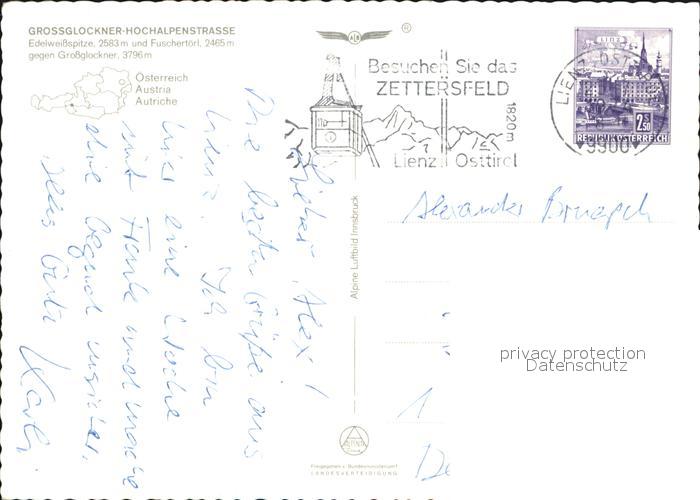 GROSSGLOCKNER-HOCHALPENSTRASSE
Edelweißspitze, 2583 m und Fuschertörl, 2465 m
gegen Großglockner, 3796 m
Österreich
Austria
Autriche
Besuchen Sie das
ZETTERSFELD
1820 m
Lienz Osttirol
LIENZ, OSTTIROL
9900
LINZ
2.50 S
REPUBLIK ÖSTERREICH
Lieber Alex!
Die besten Grüße aus
Lienz. Ich bin
hier eine Woche
und mache
eine Gegend unsicher.
Alles Gute
Karli
Alpine Luftbild Innsbruck
Alexander
1
ALPINE
Freigegeben v. Bundesministerium f.
LANDESVERTEIDIGUNG
privacy protection
Datenschutz